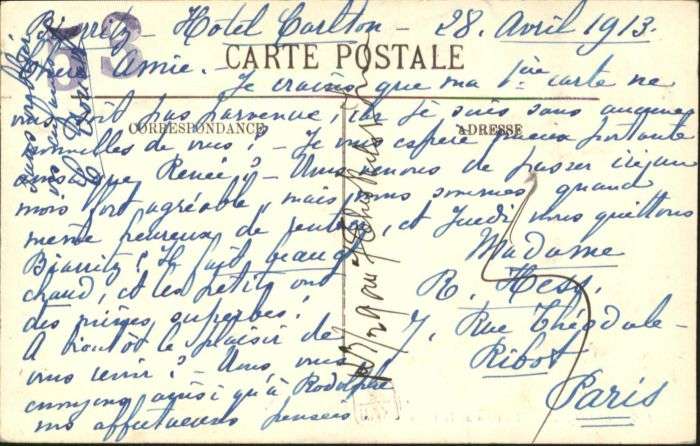 Biarritz - Hotel Carlton - 28. Avril 1913.
53
CARTE POSTALE
Chère Amie. - Je crains que ma 1ère carte ne
vous soit pas parvenue, car je suis sans aucunes
CORRESPONDANCE
ADRESSE
nouvelles de vous? - Je vous espère mieux portante
ainsi que Renée? - Nous venons de passer ici un
mois fort agréable, mais nous sommes quand
même heureux de rentrer, et Jeudi nous quittons
Biarritz! Il fait beau,
chaud, et les petits ont
des mines superbes!
A bientôt le plaisir de
vous revoir? - Nous vous
envoyons ainsi qu'à Rodolphe
nos affectueuses pensées
Madame
R. Hess.
7, Rue Théodule-
Ribot
Paris